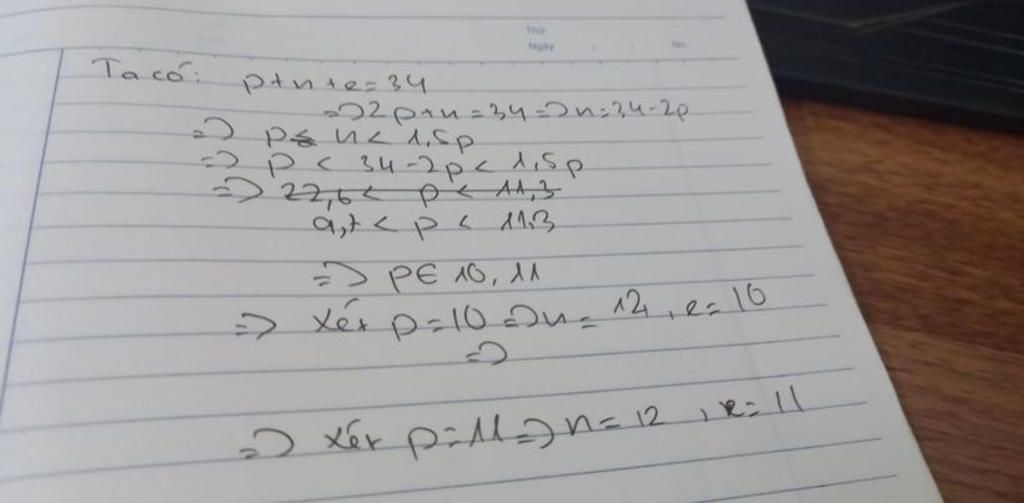 Thứ
Ngày
No
Ta có: p+n+e=34
=> 2p+n=34 => n=34-2p
=> p≤ n< 1,5p
=> p < 34-2p < 1,5p
=> 22,6 < p < 11,3
9,7 < p < 11,3
=> p∈ 10, 11
=> Xét p=10 => n= 14, e=10
=>
=> xét p=11 => n=12, e=11